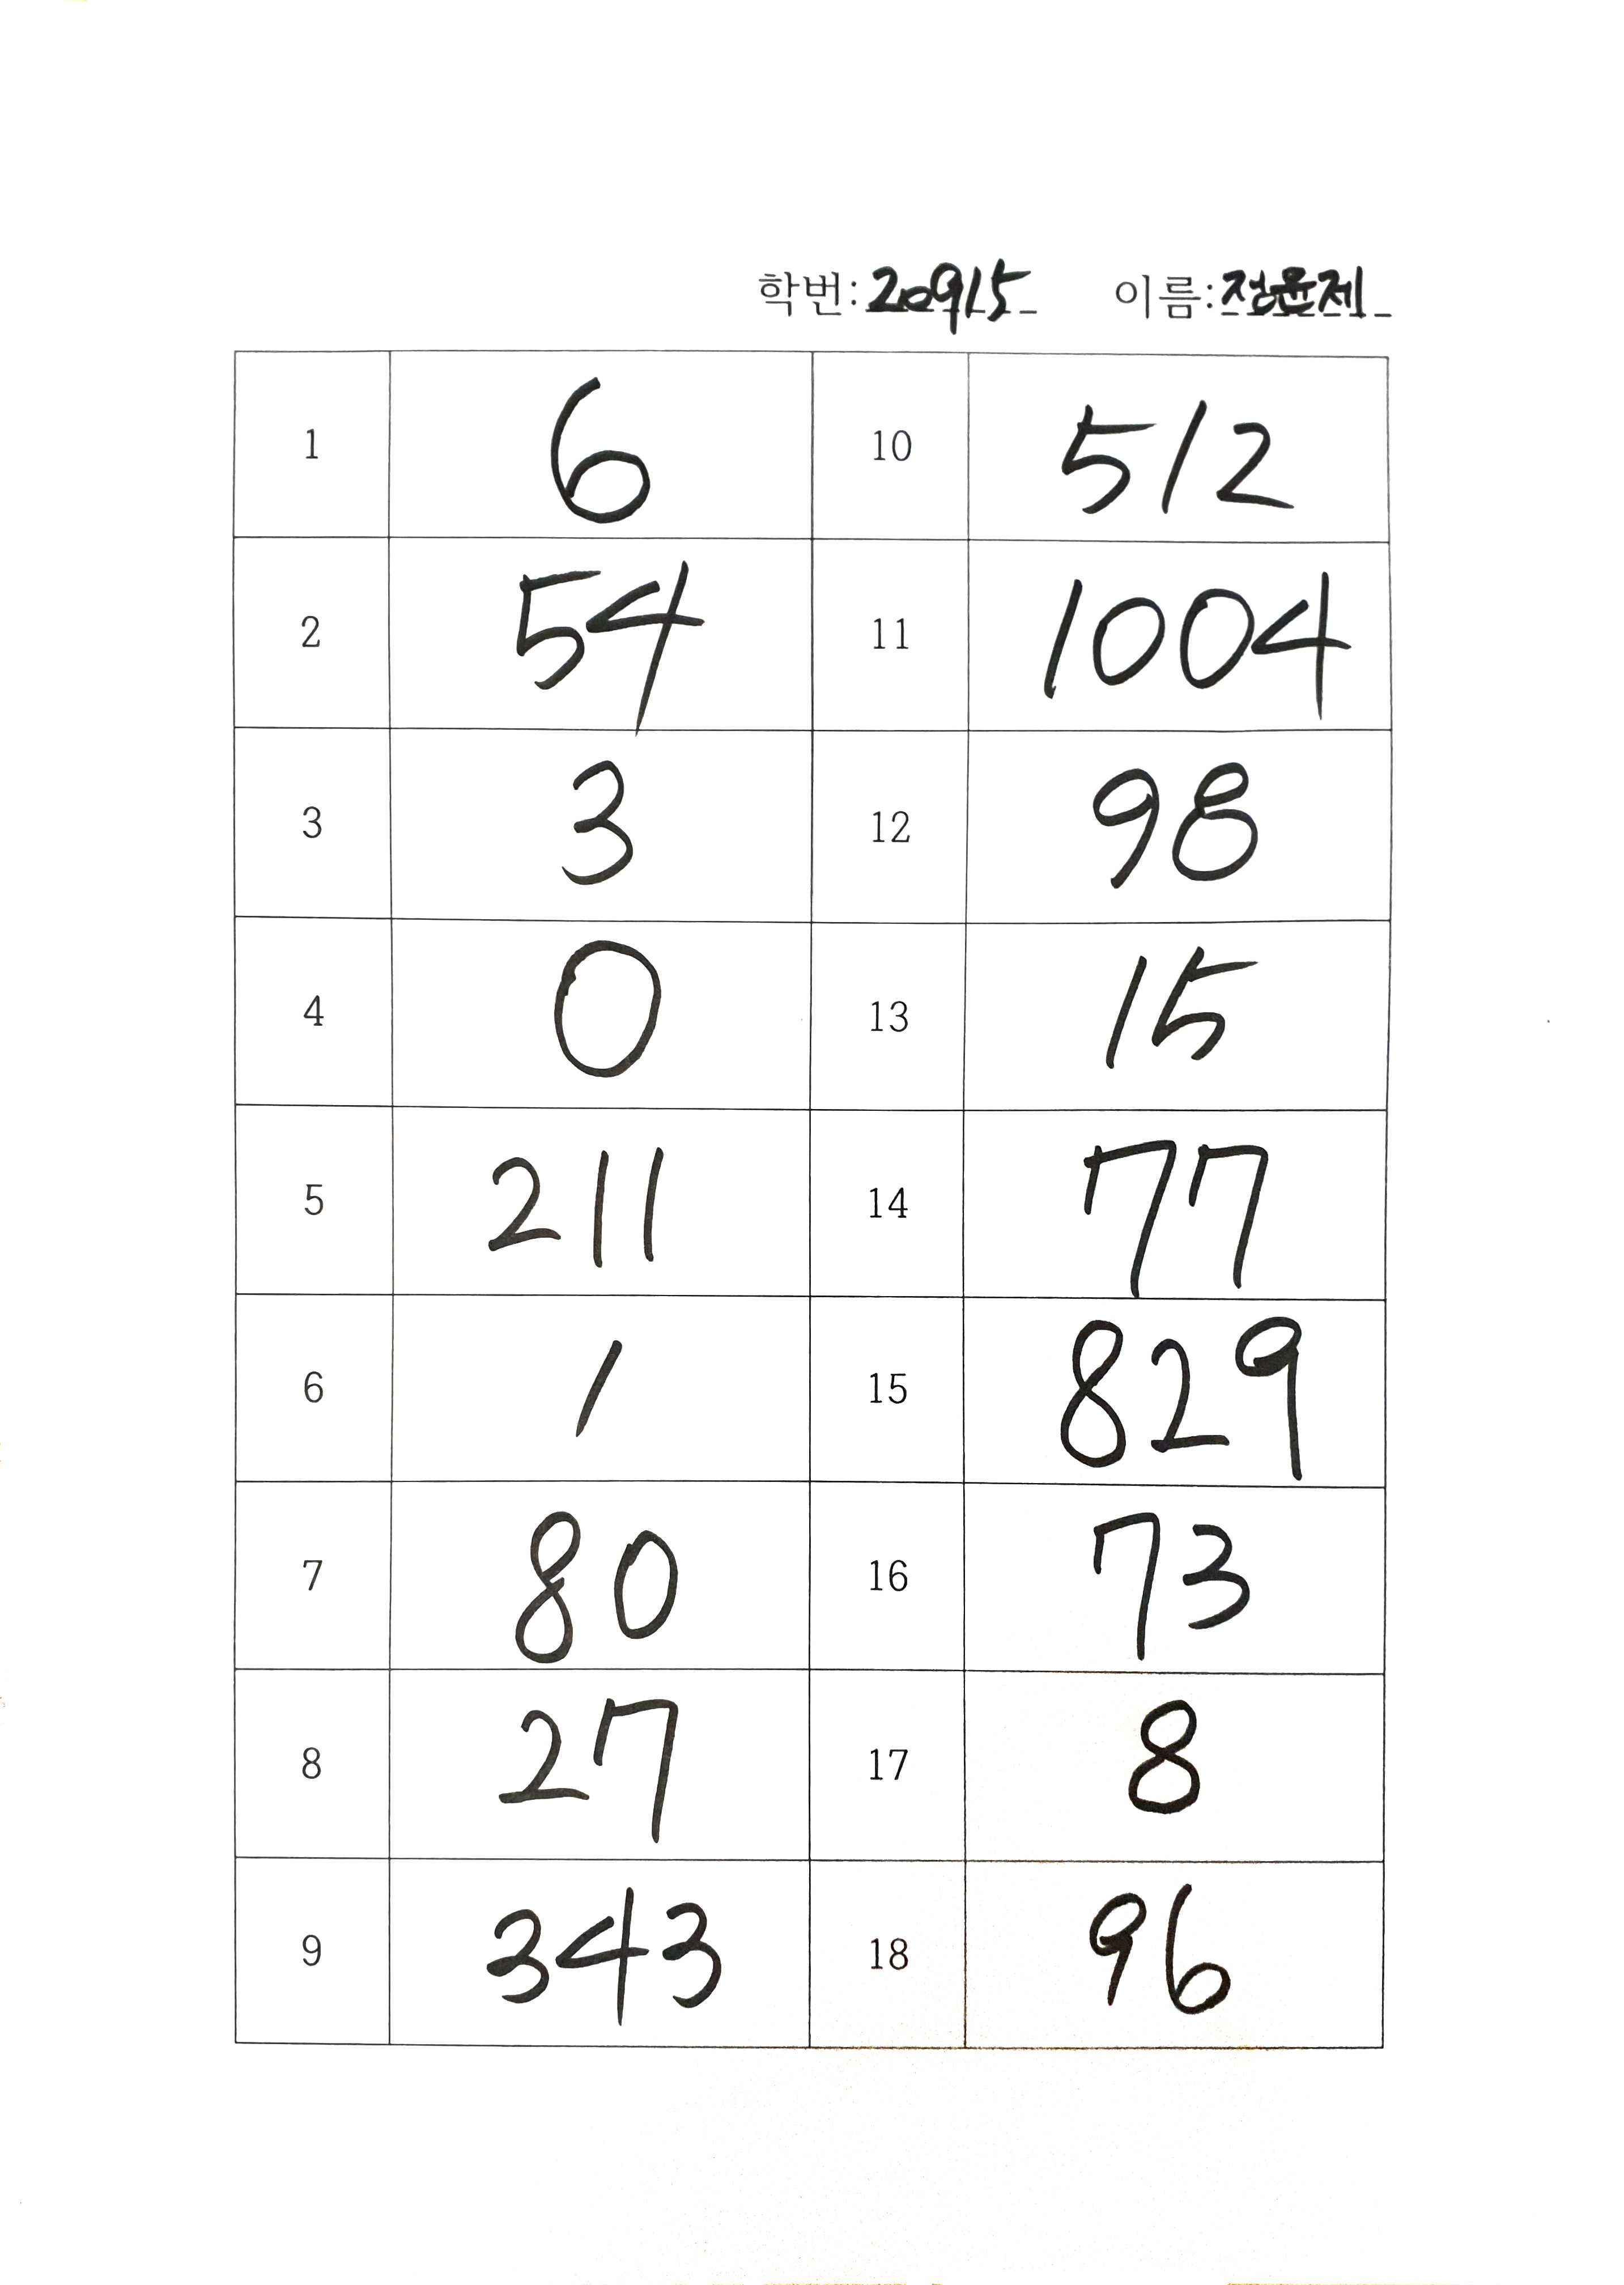 학번: 20915 이름: 정윤제
1 6 10 512
2 54 11 1004
3 3 12 98
4 0 13 15
5 211 14 77
6 1 15 829
7 80 16 73
8 27 17 8
9 343 18 96